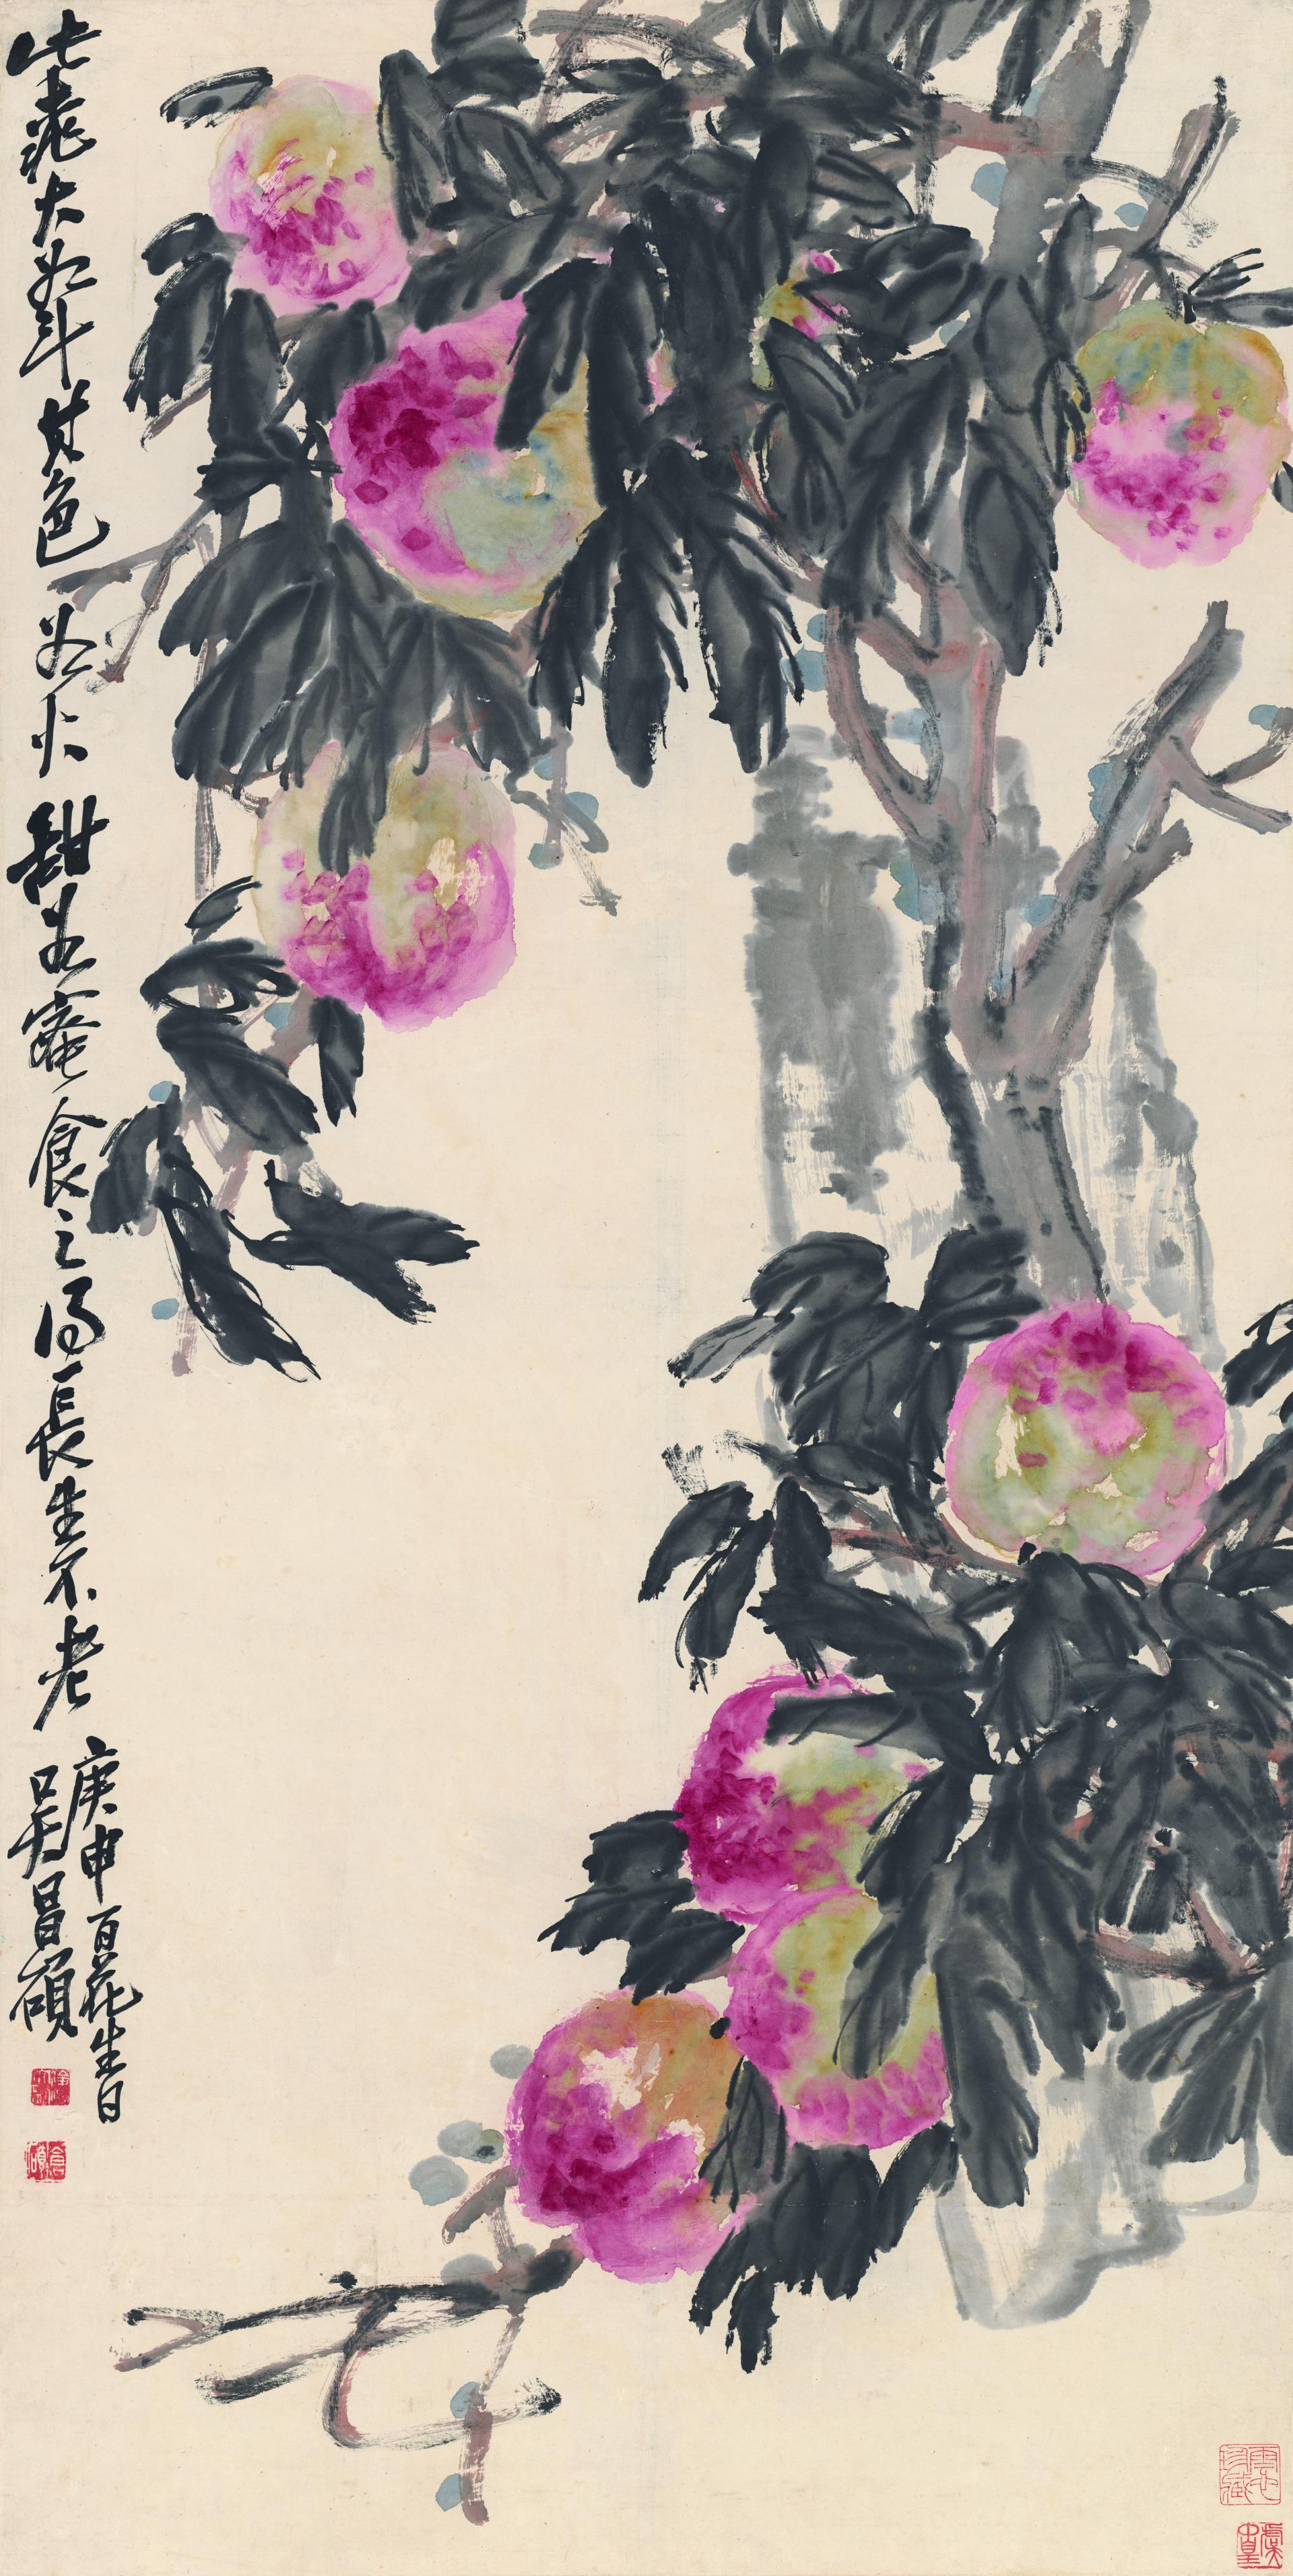 此桃大如斗其色如火甜如蜜食之得一長生不老
庚申百花生日
吳昌碩